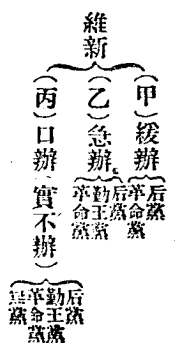 維新
(甲)緩辦
后黨
革命黨
(乙)急辦
后黨
勤王黨
革命黨
(丙)口辦(實不辦)
后黨
勤王黨
革命黨
無黨